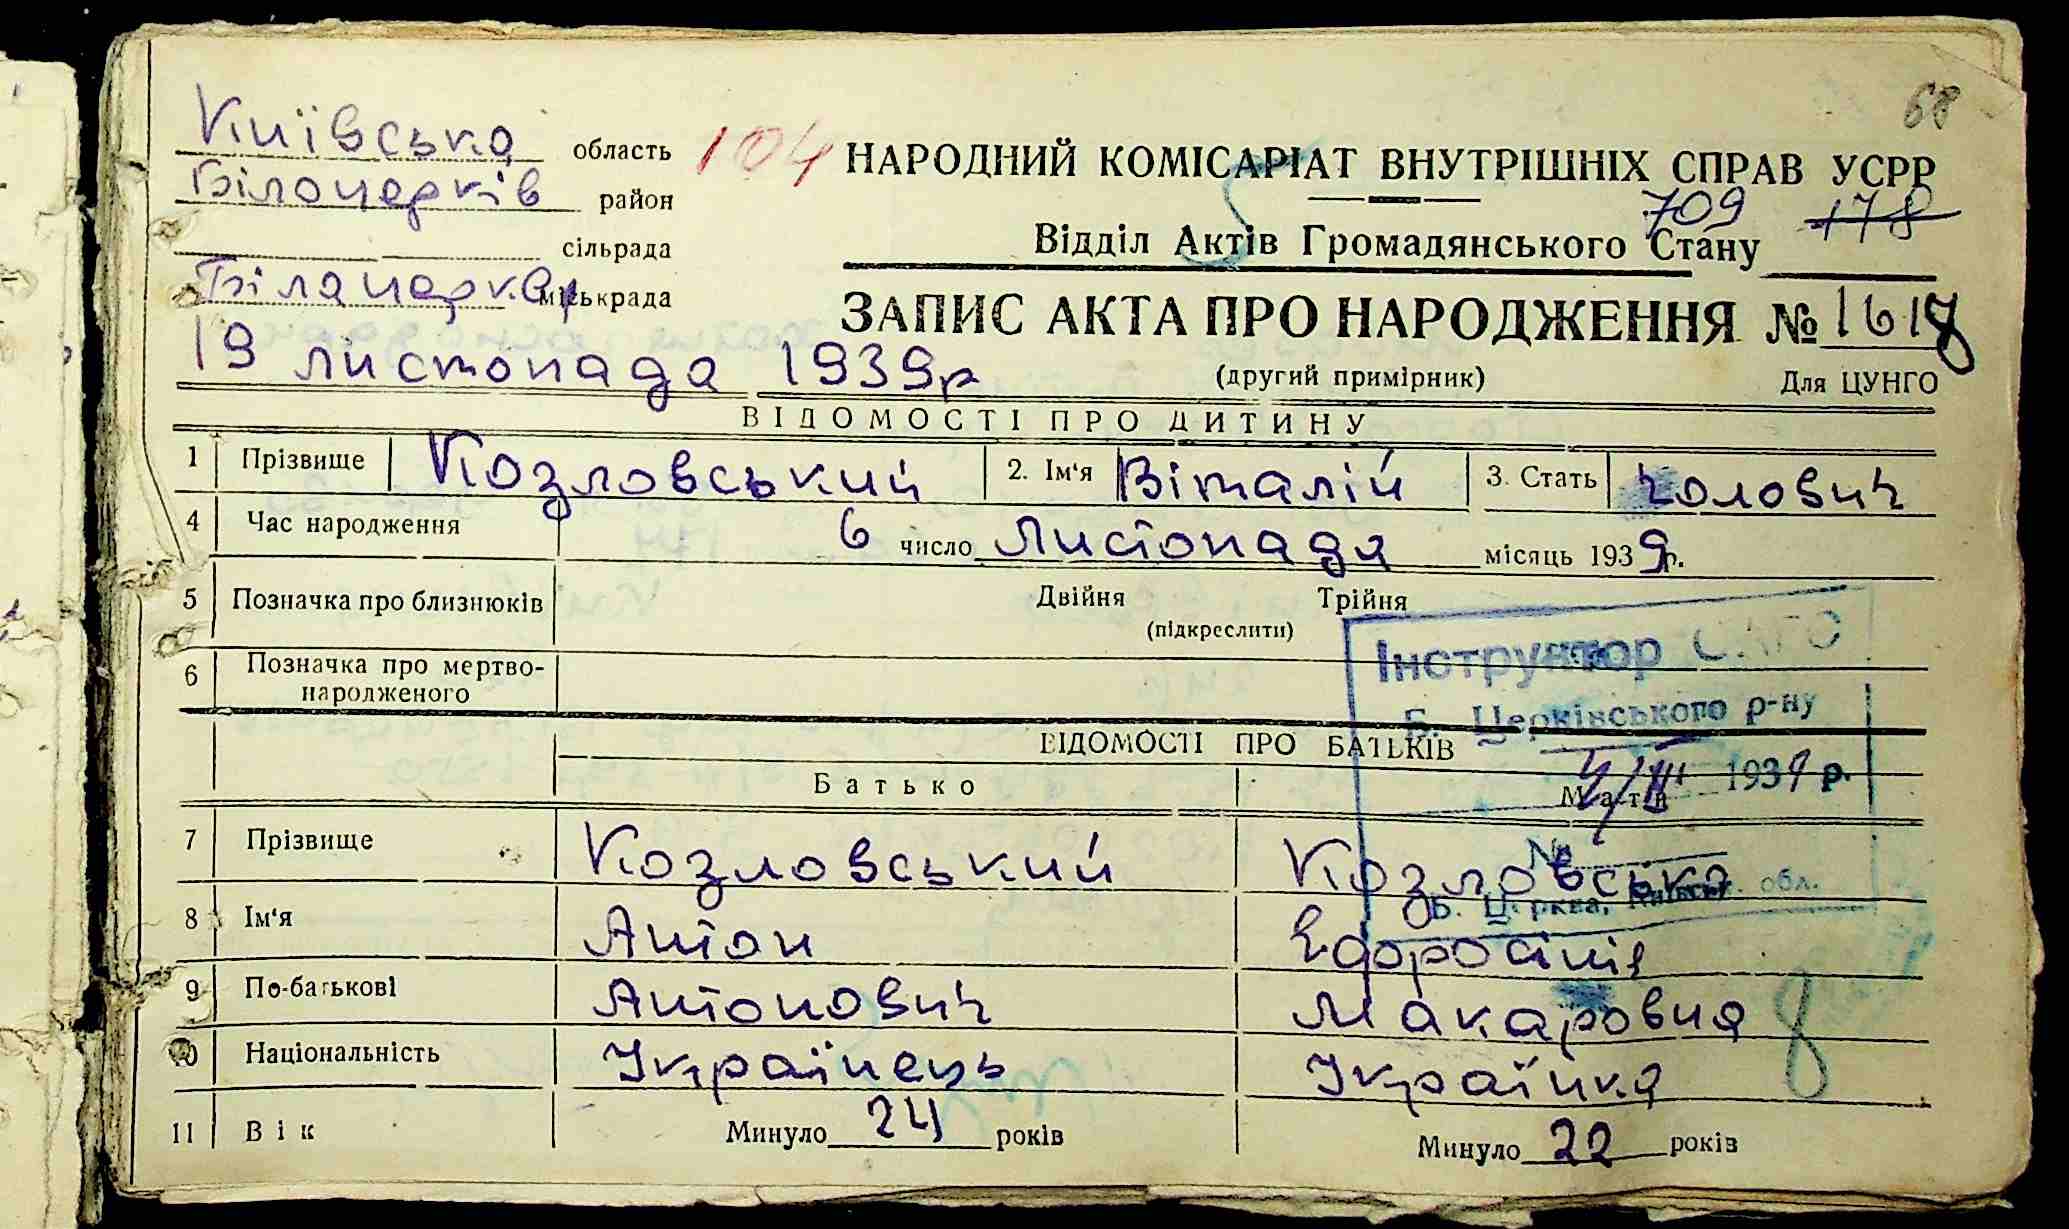 68
Київська область 104 НАРОДНИЙ КОМІСАРІАТ ВНУТРІШНІХ СПРАВ УСРР
Білоцерків район
709 178
сільрада Відділ Актів Громадянського Стану
Білацерк. міськрада
ЗАПИС АКТА ПРО НАРОДЖЕННЯ № 1618
19 листопада 1939р (другий примірник) Для ЦУНГО
ВІДОМОСТІ ПРО ДИТИНУ
1 Прізвище Козловський 2. Ім'я Віталій 3. Стать чолович
4 Час народження 6 число листопада місяць 1939р.
5 Позначка про близнюків Двійня Трійня
(підкреслити)
6 Позначка про мертво-
народженого
Інструктор ОАГС
Б. Церківського р-ну
ВІДОМОСТІ ПРО БАТЬКІВ
4/XII 1939 р.
Батько Мати
7 Прізвище Козловський Козловська
№
Б. Церква, Київськ. обл.
8 Ім'я Антон
9 По-батькові Антонович Макаровна
10 Національність Українець Українка
8
11 Вік Минуло 24 років Минуло 22 років